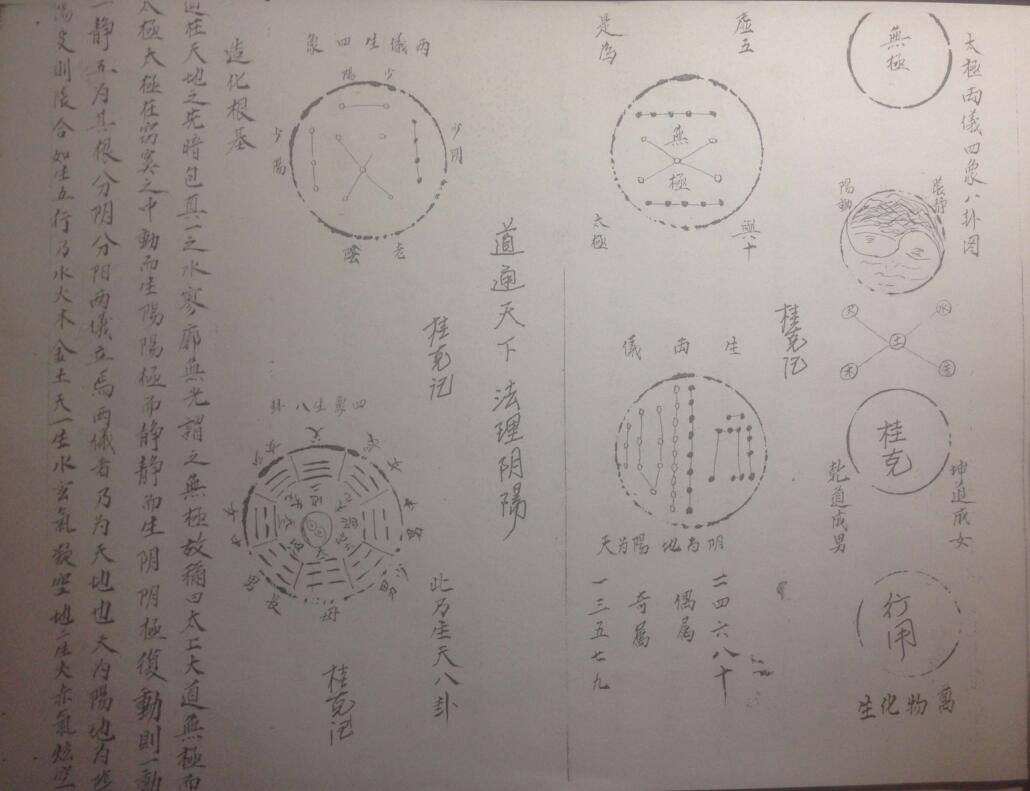 太極兩儀四象八卦图
無極
陽動
陰静
火
水
土
木
金
桂克
坤道成女
乾道成男
行用
萬物化生
虚五
是為
無極
與十
太極
桂克记
生兩儀
天为陽地为阴
二四六八十
偶属
奇属
一三五七九
道通天下法理阴陽
兩儀生四象
少陽
少阴
老陰
桂克记
四象生八卦
父
母
此乃先天八卦
桂克记
造化根基
道在天地之先暗包真一之水寥廓無光謂之無極故稱曰太上大道無極而
太極太極在窈冥之中動而生陽陽極而静静而生阴阴極復動則一動
一静互为其根分阴分阳兩儀立焉兩儀者乃为天地也天为陽地为
陽变則陰合如生五行乃水火木金土天一生水玄氣発空地二生火赤氣炫空